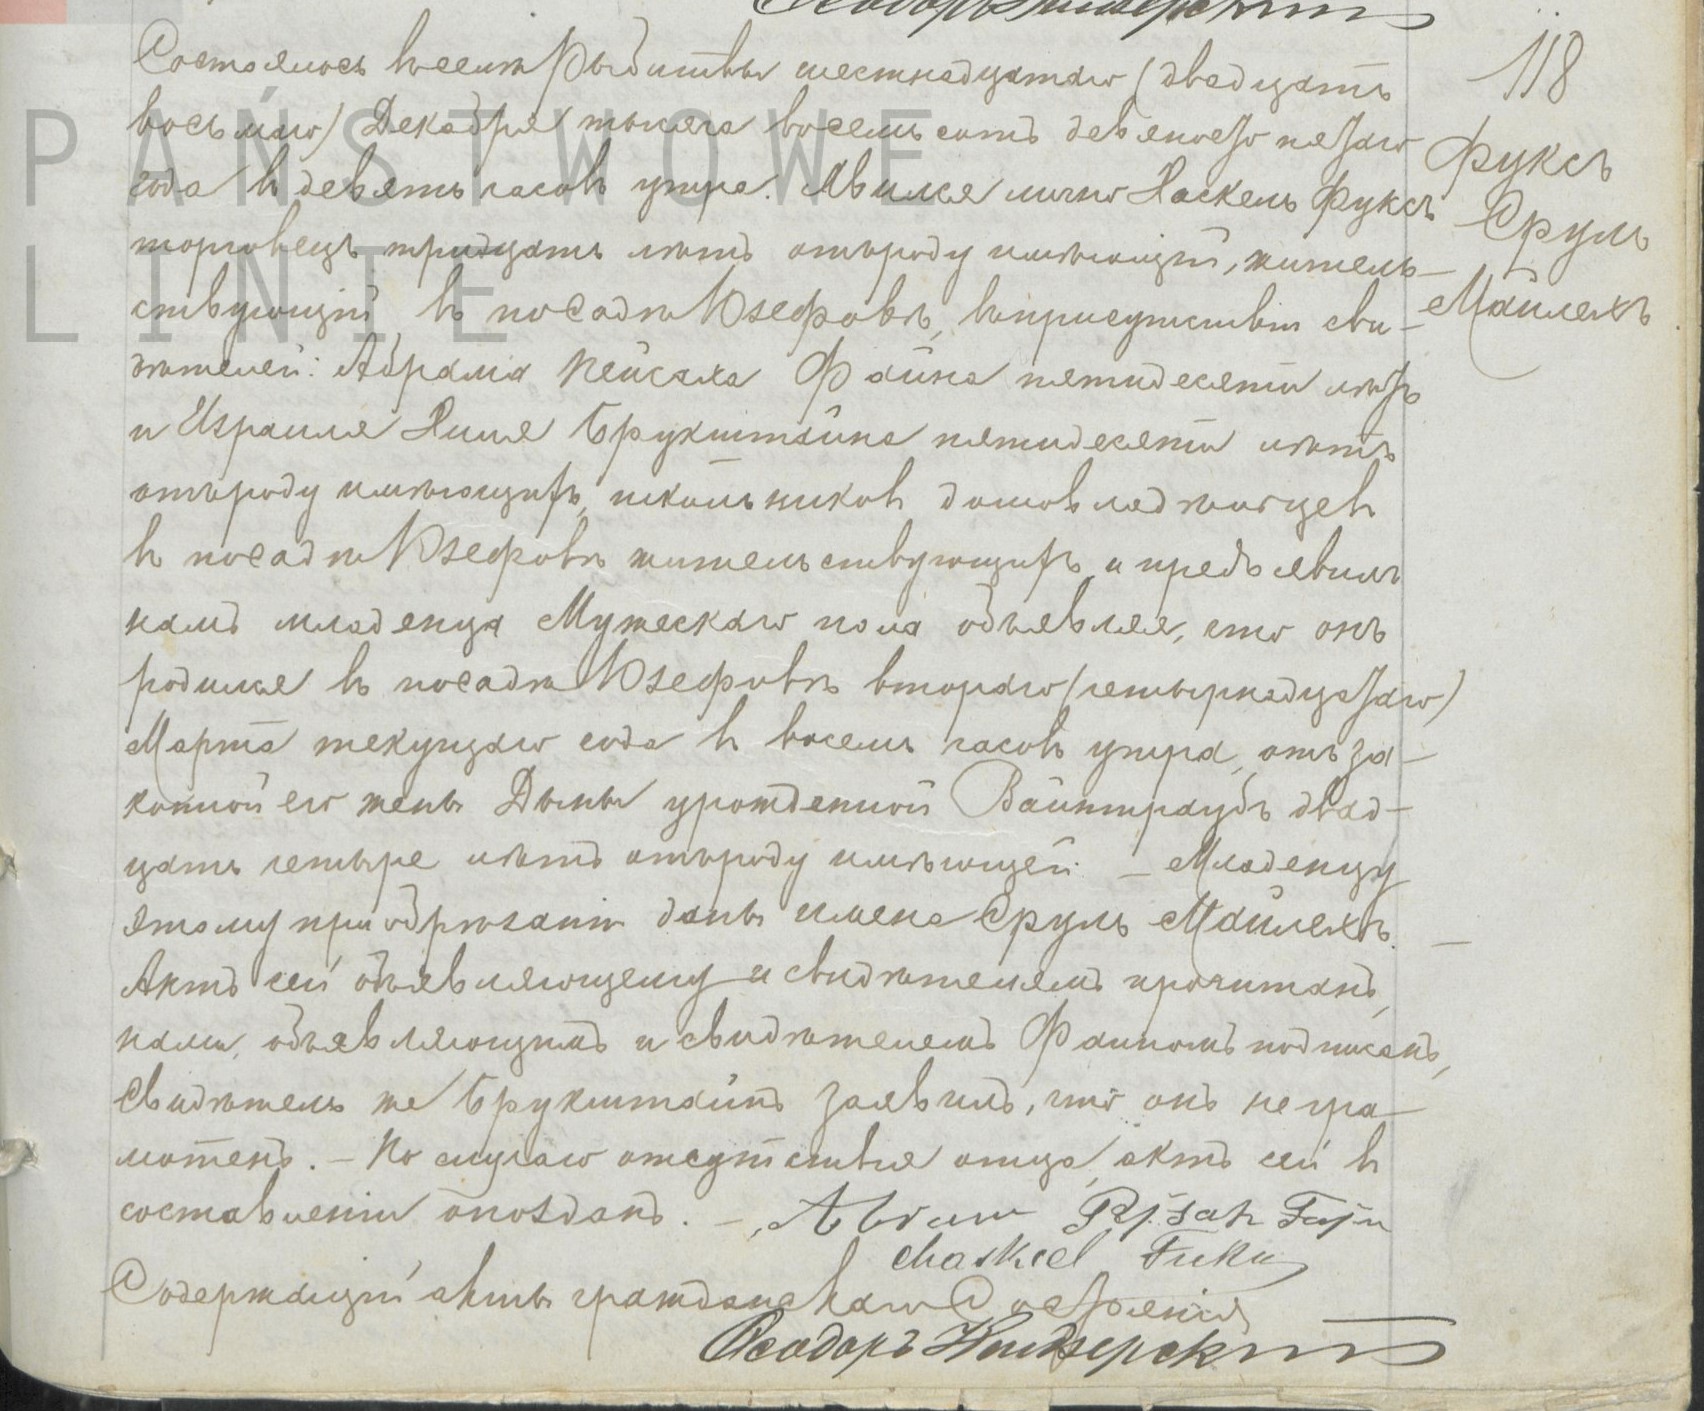 Состоялось въ селѣ Рыбитвы шестнадцатаго (двадцать
118
восьмаго) Декабря тысяча восемьсотъ девяносто пятаго
Фуксъ
года въ девять часовъ утра. Явился лично Хаскель Фуксъ
Сруль
торговецъ тридцать лѣтъ отъ роду имѣющій, житель-
Майлехъ
ствующій въ посадѣ Юзефовѣ, въ присутствіи сви-
дѣтелей: Абрама Пейсаха Файна пятидесяти лѣтъ
и Израиля Хиля Брукштайна пятидесяти лѣтъ
отъ роду имѣющихъ, школьниковъ домовладѣльцевъ
въ посадѣ Юзефовѣ жительствующихъ и предъявилъ
намъ младенца Мужескаго пола объявляя, что онъ
родился въ посадѣ Юзефовѣ втораго (четырнадцатаго)
Марта текущаго года въ восемь часовъ утра, отъ за-
конной его жены Дыны урожденной Вайнтраубъ двад-
цать четыре лѣтъ отъ роду имѣющей. – Младенцу
этому при обрѣзаніи даны имена Сруль Майлехъ. –
Актъ сей объявляющему и свидѣтелямъ прочитанъ,
нами, объявляющимъ и свидѣтелемъ Файномъ подписанъ,
Свидѣтель же Брукштайнъ заявилъ, что онъ негра-
мотенъ. – По случаю отсутствія отца, актъ сей въ
составленіи опозданъ. – Abram Pejsah Fajn
Chaskiel Fuks
Содержащій акты гражданскаго Состоянія
Ѳеодоръ
PAŃSTWOWE
LINIE